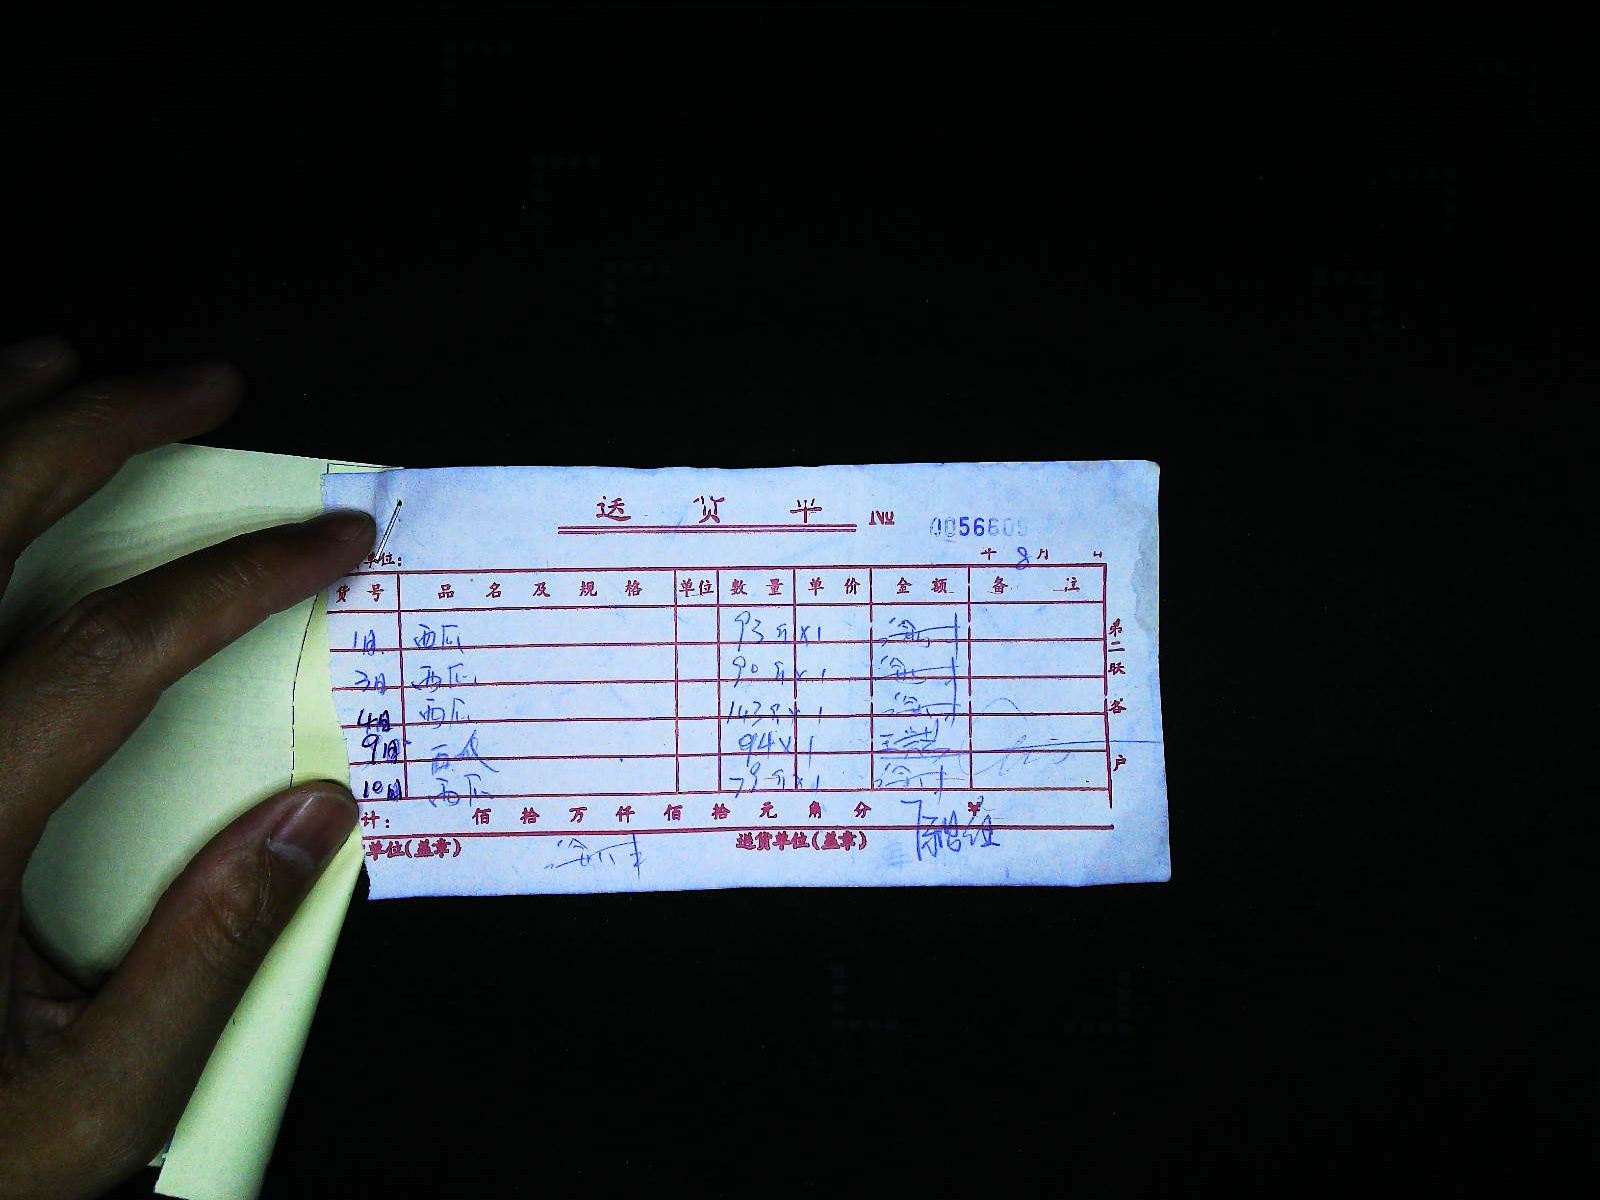 送货单 №
单位: 年 8月 日
货号 品名及规格 单位 数量 单价 金额 备注
1日 西瓜 93斤 x1
3日 西瓜 90斤 x1
4日 西瓜 143斤 x1
9日 西瓜 94 x1
10日 西瓜 79斤 x1
计: 佰拾万仟佰拾元角分 ¥
单位(盖章) 送货单位(盖章)
第二联 客户